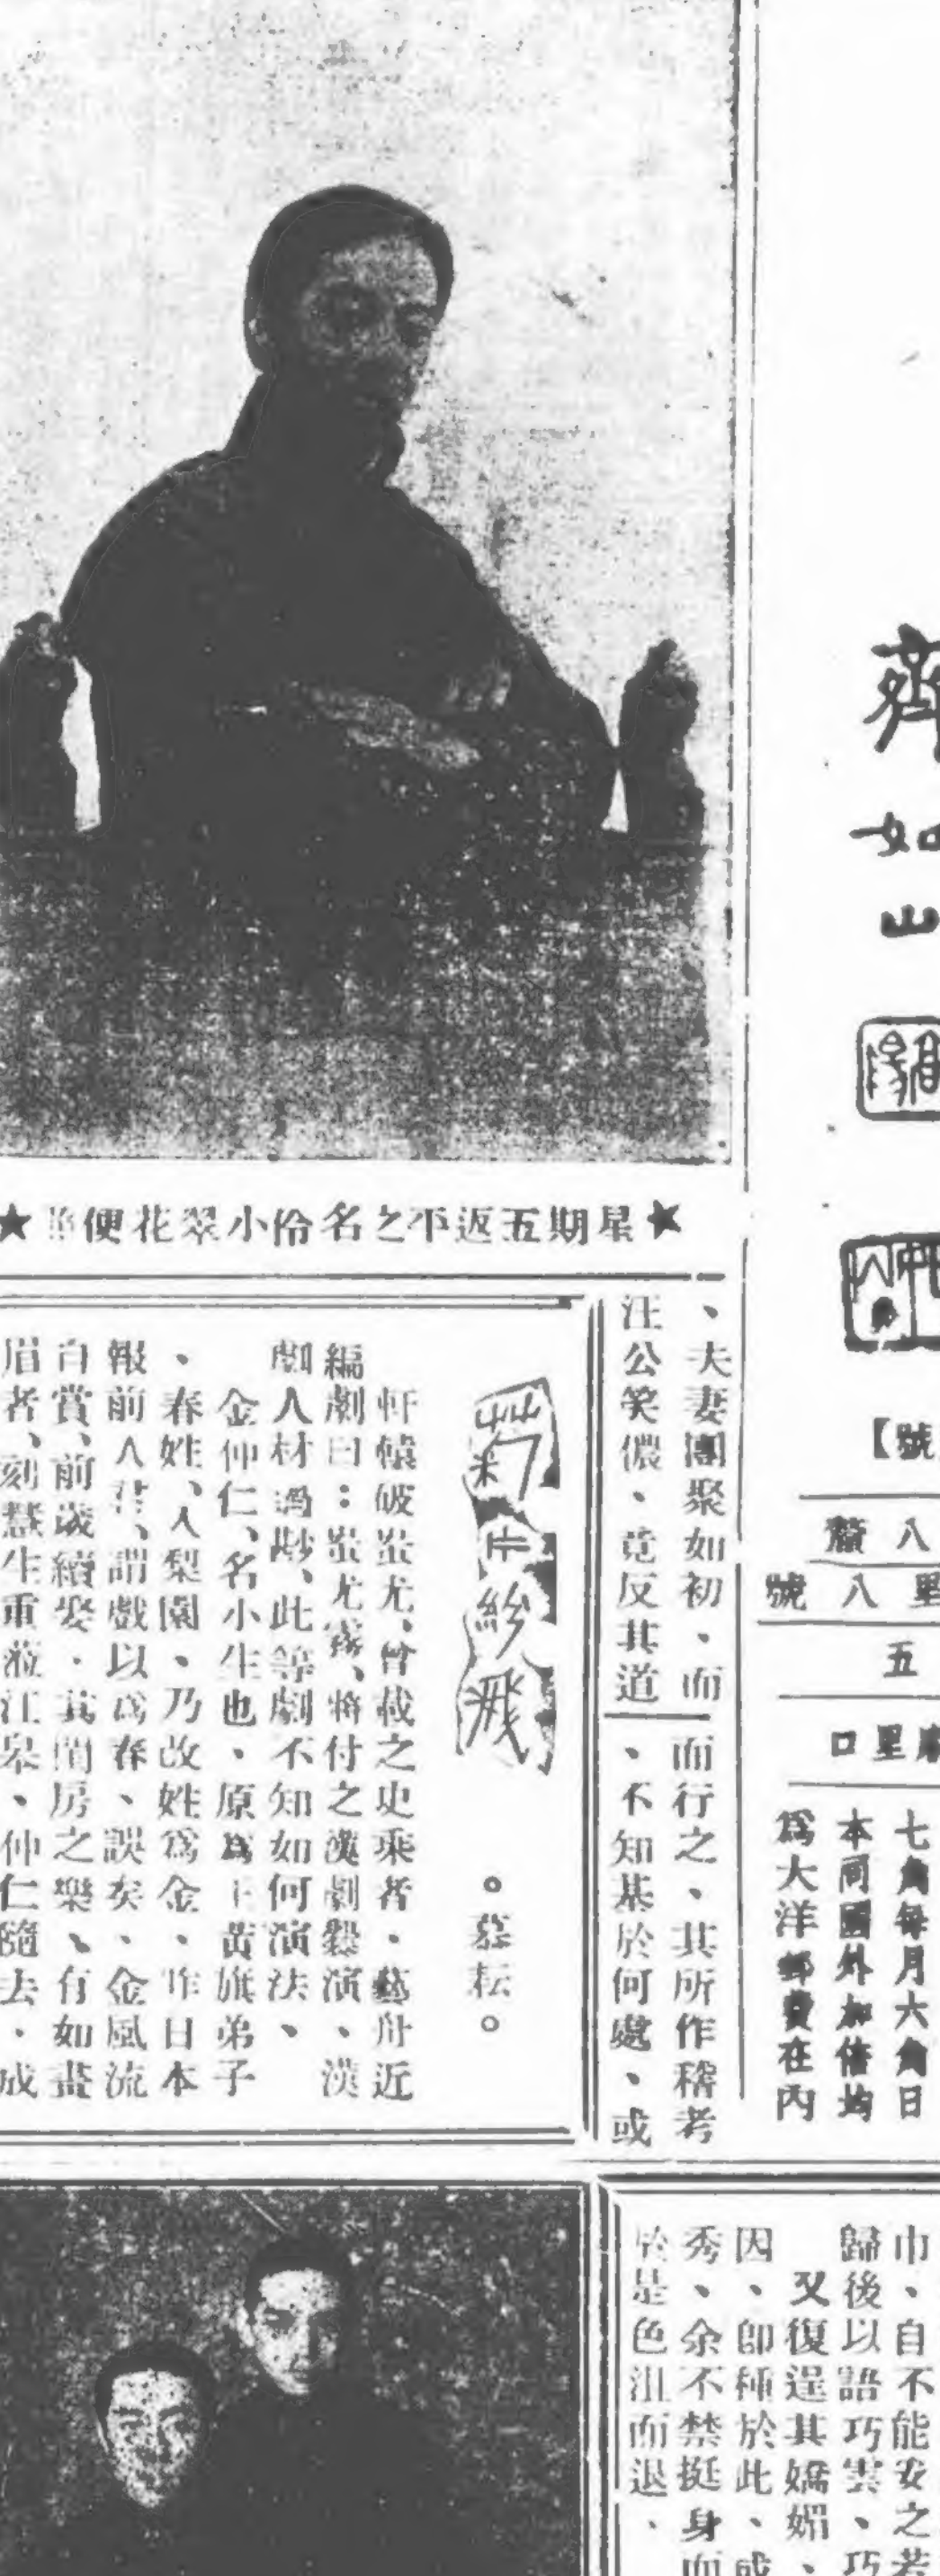 齊如山
號】
八 麓
里 八 號
五
里口
七角每月六角日
本同國外加倍均
為大洋郵費在內
★星期五返平之名伶小翠花便★
、夫妻團聚如初、而
汪公笑儂、竟反其道
而行之、其所作稽考
、不知基於何處、或
。慕耘。
軒轅破蚩尤、曾載之史乘者、藝舟近
編劇曰：蚩尤霧、將付之漢劇縏演、漢
劇人材過尠、此等劇不知如何演法、
金仲仁、名小生也、原為正黃旗弟子
、春姓、入梨園、乃改姓為金、昨日本
報前人君、謂戲以為春、誤矣、金風流
自賞、前歲續娶、其閨房之樂、有如畫
眉者、刻慧生重蒞江皋、仲仁隨去、成
巾、自不能安之若
歸後以語巧雲、巧
又復逞其嬌媚、
因、即種於此、或
秀、余不禁挺身而
於是色沮而退、